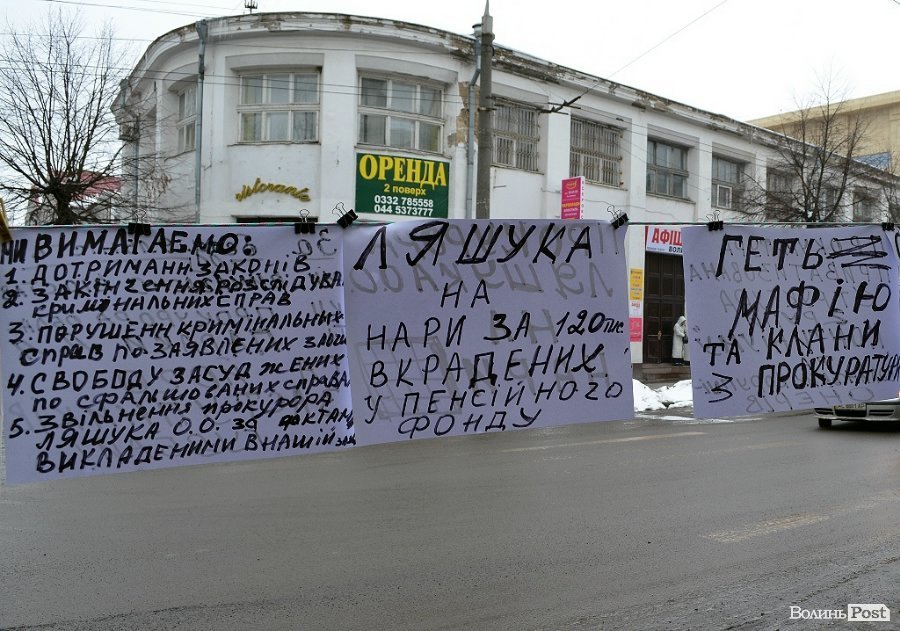 ristorante
ОРЕНДА
2 поверх
0332 785558
044 5373777
АФІШ
МИ ВИМАГАЄМО:
1. ДОТРИМАНН ЗАКОНІВ
2. ЗАКІНЧЕННЯ РОЗСЛІДУВА
КРИМІНАЛЬНИХ СПРАВ
3. ПОРУШЕНН КРИМІНАЛЬНИХ
СПРАВ ПО ЗАЯВЛЕНИХ ЗЛОЧИ
4. СВОБОДУ ЗАСУДЖЕНИХ
ПО СФАЛЬШОВАНИХ СПРАВА
5. ЗВІЛЬНЕННЯ ПРОКУРОРА
ЛЯШУКА О.О. ЗА ФАКТАМ
ВИКЛАДЕНИМИ В НАШІЙ
ЛЯШУКА
НА
НАРИ ЗА 120 тис
ВКРАДЕНИХ
У ПЕНСІЙНОГО
ФОНДУ
ГЕТЬ
МАФІЮ
ТА КЛАНИ
З ПРОКУРАТУРИ
ВолиньPost